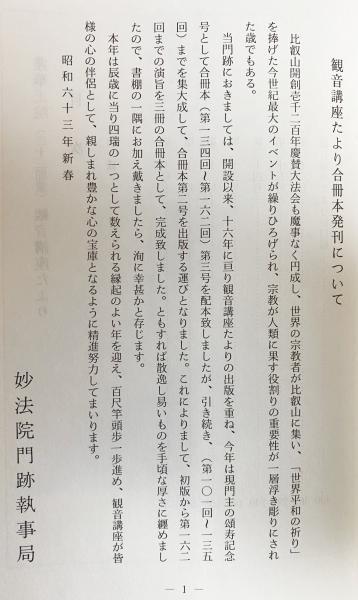 観音講座たより合冊本発刊について
比叡山開創壱千二百年慶賛大法会も魔事なく円成し、世界の宗教者が比叡山に集い、「世界平和の祈り」
を捧げた今世紀最大のイベントが繰りひろげられ、宗教が人類に果す役割りの重要性が一層浮き彫りにされ
た歳でもある。
当門跡におきましては、開設以来、十六年に亘り観音講座たよりの出版を重ね、今年は現門主の頌寿記念
号として合冊本(第一三四回~第一六二回)第三号を配本致しましたが、引き続き、(第一〇一回~一三五
回)までを集大成して、合冊本第二号を出版する運びとなりました。これによりまして、初版から第一六二
回までの演旨を三冊の合冊本として、完成致しました。ともすれば散逸し易いものを手頃な厚さに纏めまし
たので、書棚の一隅にお加え戴きましたら、洵に幸甚かと存じます。
本年は辰歳に当り四瑞の一つとして数えられる縁起のよい年を迎え、百尺竿頭歩一歩進め、観音講座が皆
様の心の伴侶として、親しまれ豊かな心の宝庫となるように精進努力してまいります。
昭和六十三年新春
妙法院門跡執事局
— 1 —